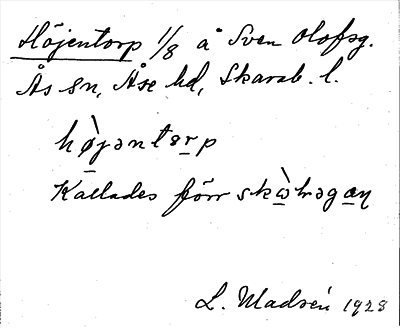 Höjentorp 1/8 å Sven Olofsg.
Ås sn, Åse hd, Skarab. l.
hø̀jəntərp
Kallades förr skɷ̀trəgaɳ
L. Madsén 1928